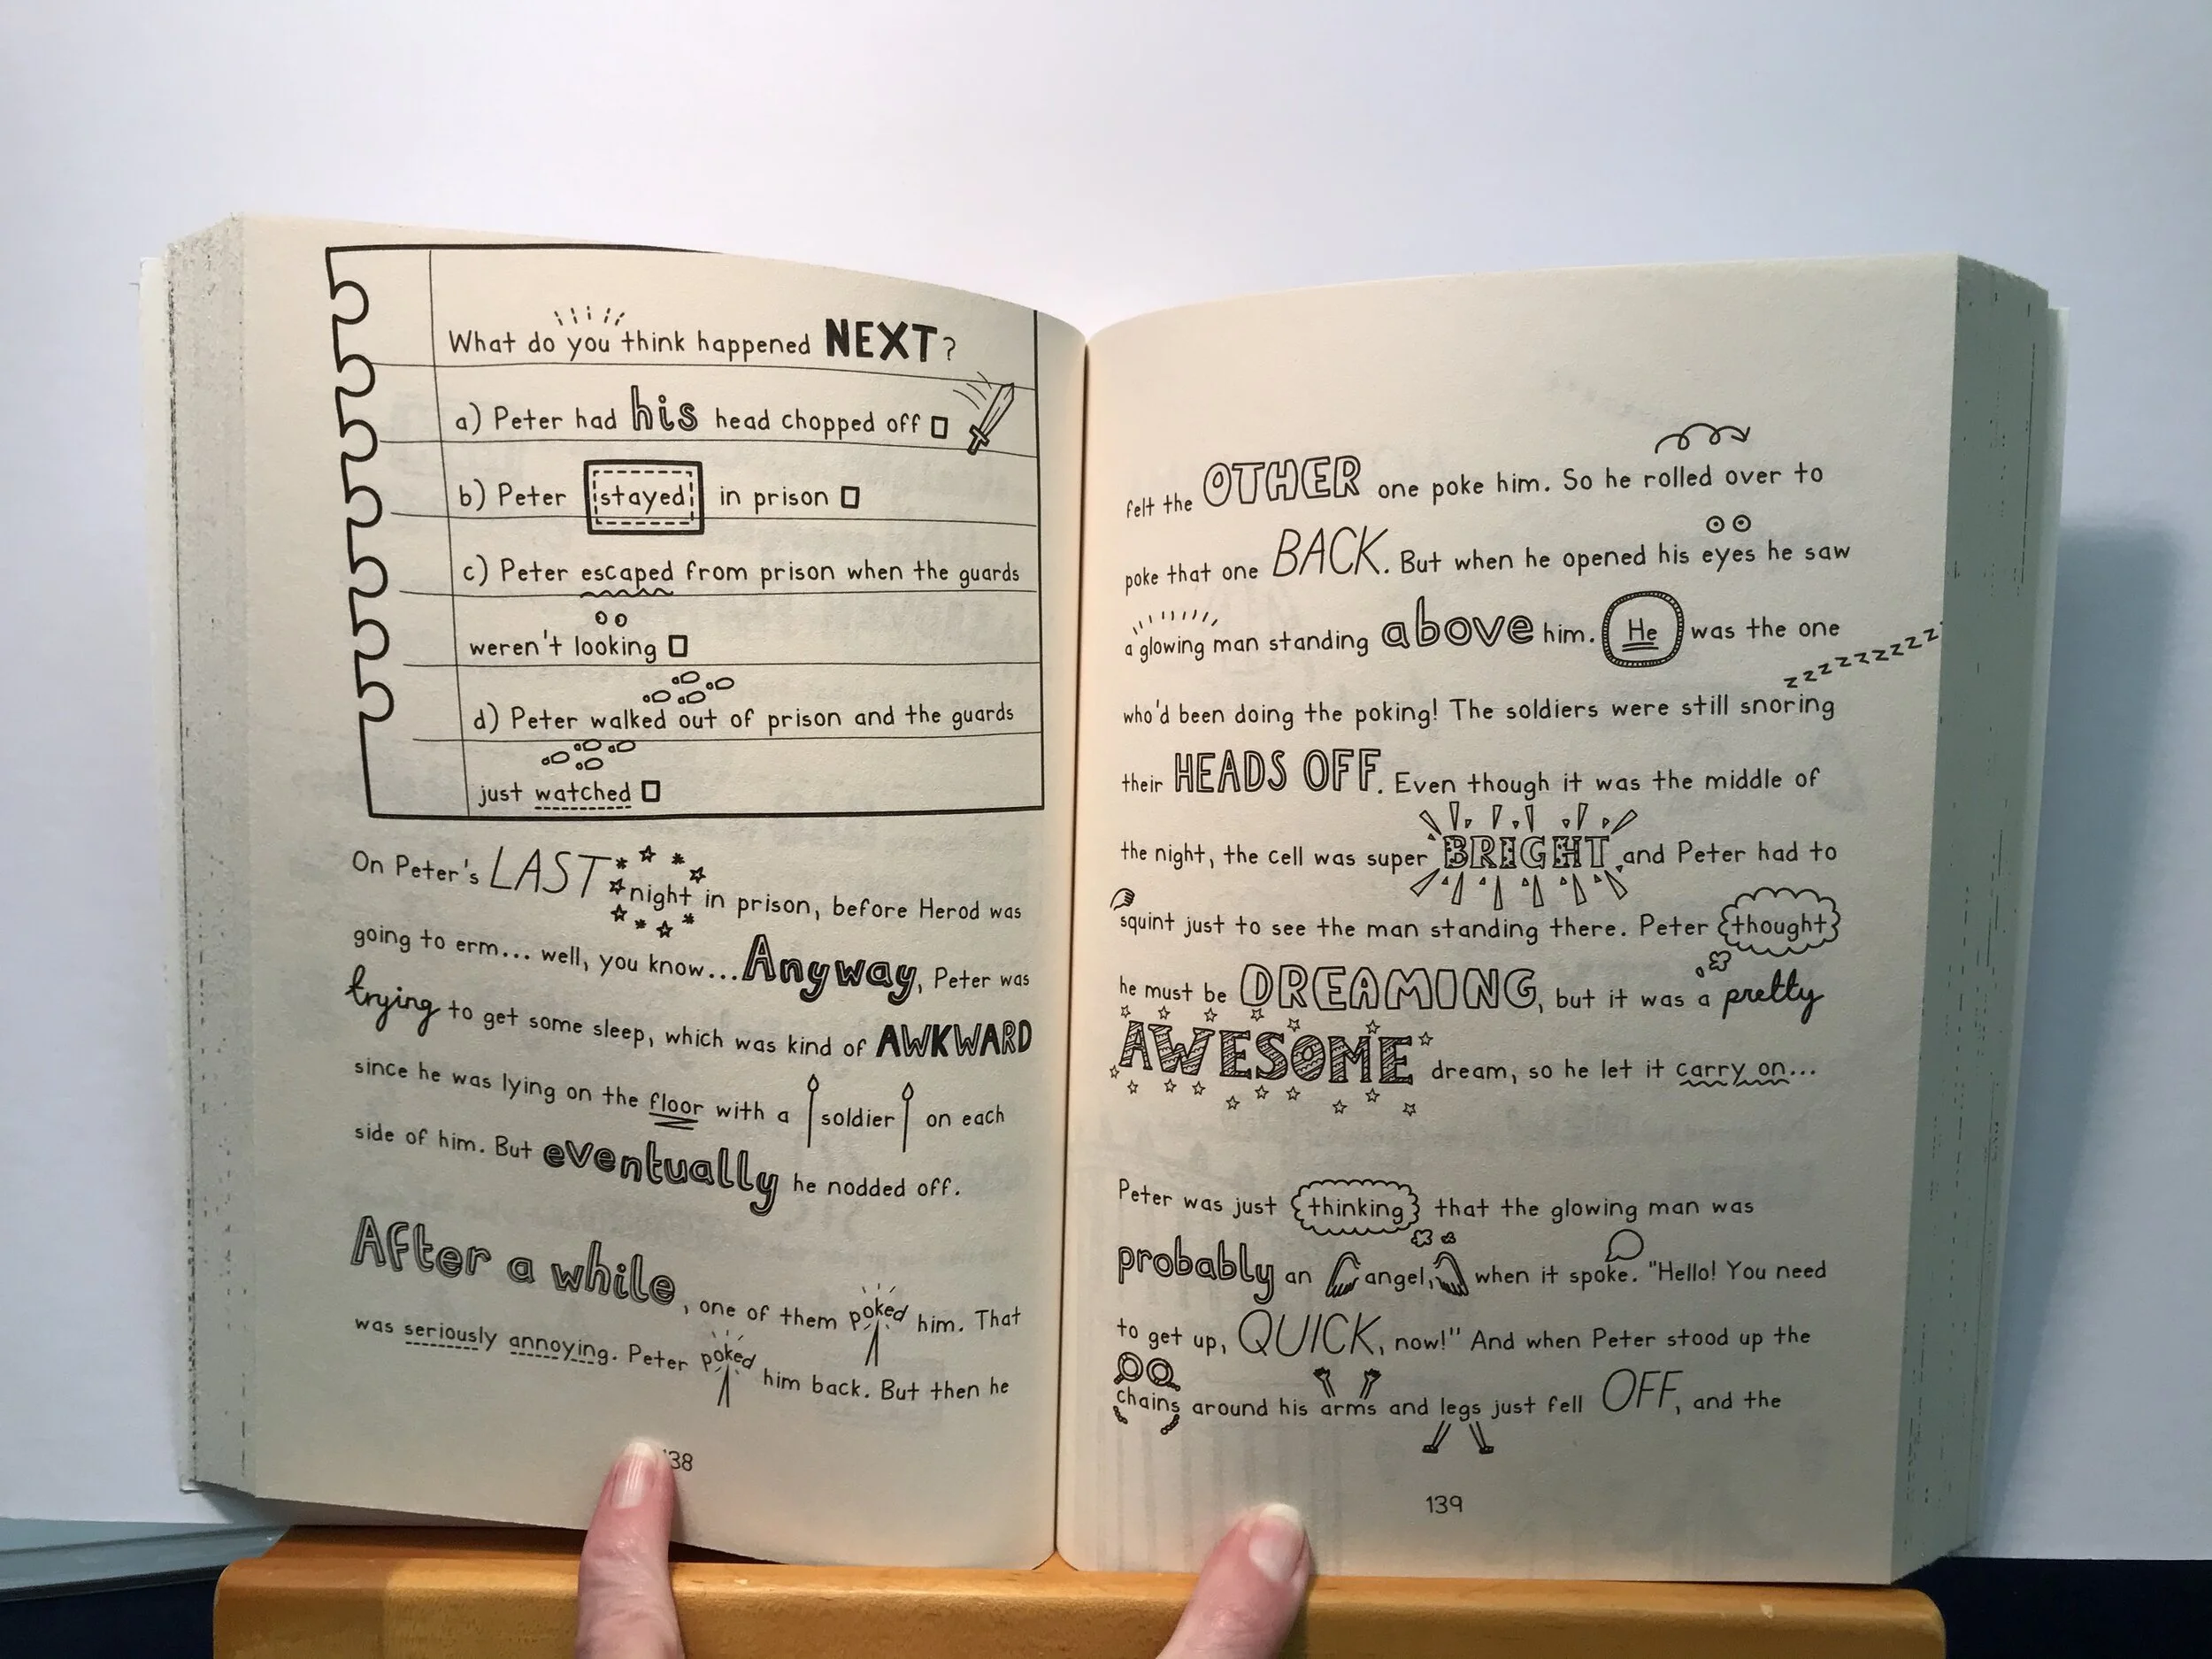 What do you think happened NEXT?
a) Peter had his head chopped off
b) Peter stayed in prison
c) Peter escaped from prison when the guards
weren't looking
d) Peter walked out of prison and the guards
just watched
On Peter's LAST night in prison, before Herod was
going to erm... well, you know... Anyway, Peter was
trying to get some sleep, which was kind of AWKWARD
since he was lying on the floor with a soldier on each
side of him. But eventually he nodded off.
After a while, one of them poked him. That
was seriously annoying. Peter poked him back. But then he
38
felt the OTHER one poke him. So he rolled over to
poke that one BACK. But when he opened his eyes he saw
a glowing man standing above him. He was the one
zzzzzzzzz
who'd been doing the poking! The soldiers were still snoring
their HEADS OFF. Even though it was the middle of
the night, the cell was super BRIGHT and Peter had to
squint just to see the man standing there. Peter thought
he must be DREAMING, but it was a pretty
AWESOME dream, so he let it carry on...
Peter was just thinking that the glowing man was
probably an angel, when it spoke. "Hello! You need
to get up, QUICK, now!" And when Peter stood up the
chains around his arms and legs just fell OFF, and the
139